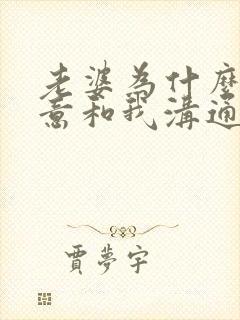 老婆為什麼
意和我溝通
賈夢宇